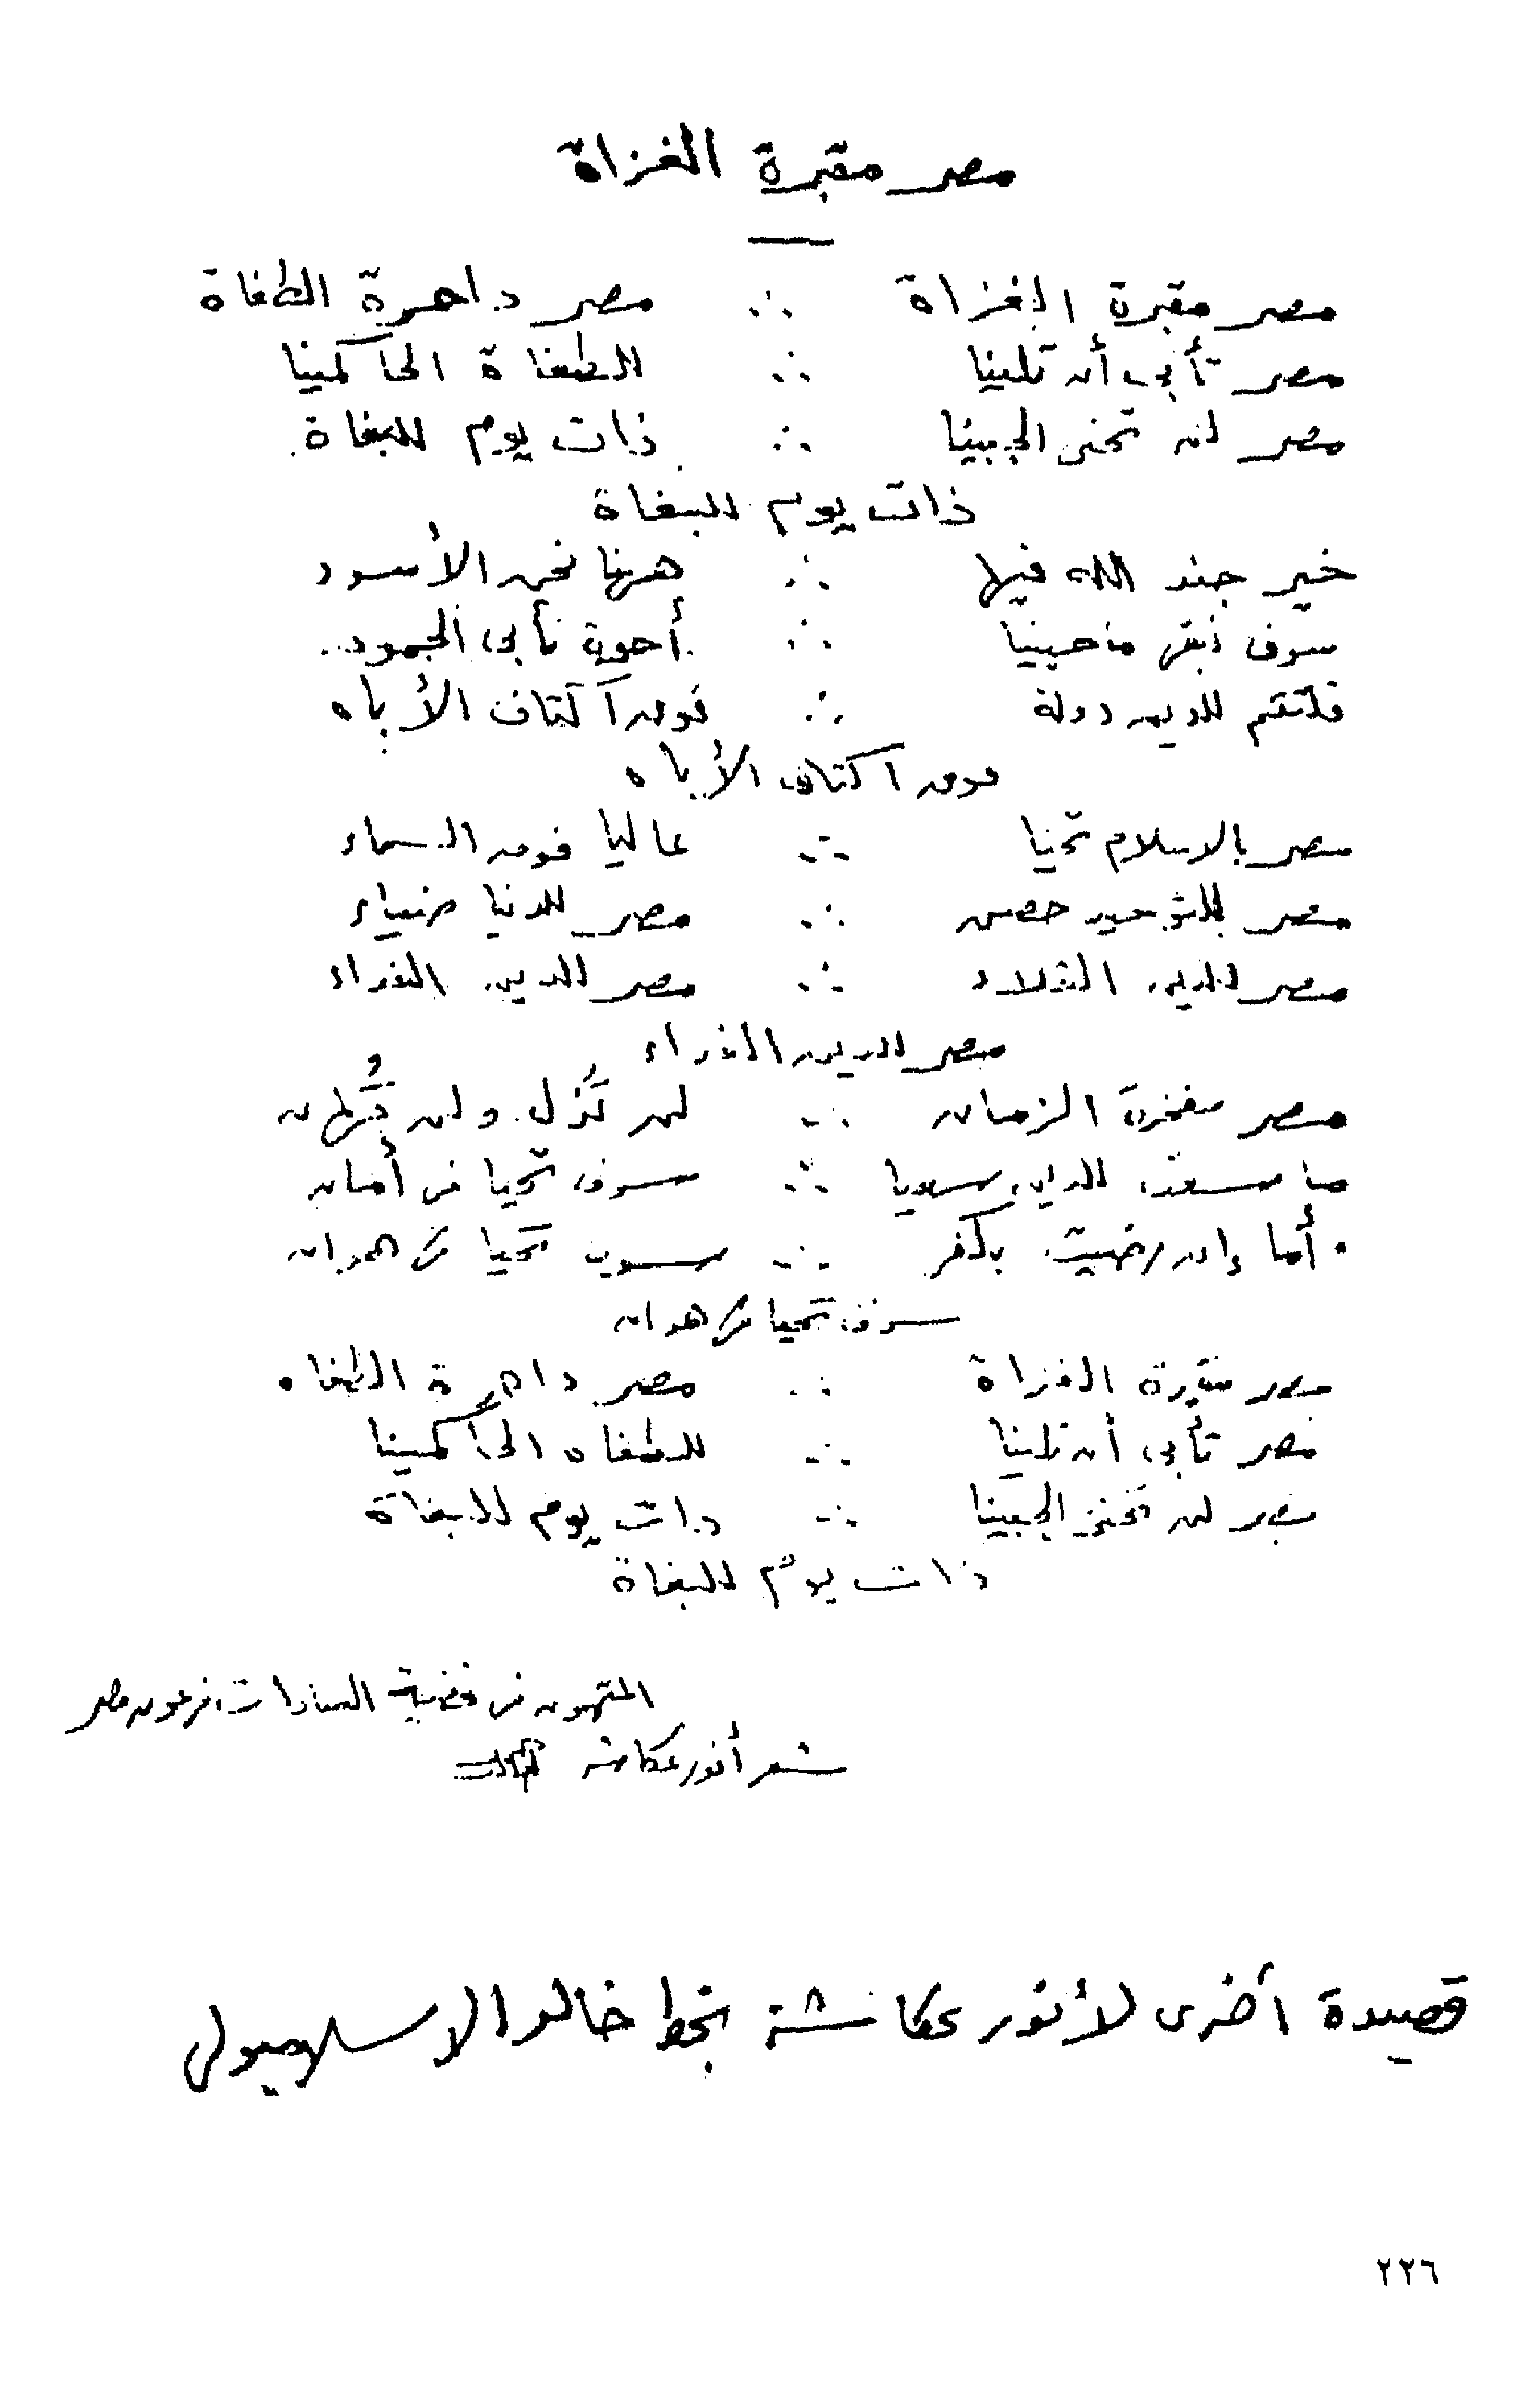 مصر مقبرة الغزاة
مصر مقبرة الغزاة ∴ مصر داحرة الطغاة
مصر تأبى أن تلينا ∴ للطغاة الحاكمينا
مصر لن تحنى الجبينا ∴ ذات يوم للبغاة
ذات يوم للبغاة
خير جند الله فيها ∴ ههنا نحن الأسود
سوف نبقى ما حيينا ∴ أخوة نأبى الجمود
فلتقم للدين دولة ∴ فوق أكتاف الأباه
فوق أكتاف الأباه
مصر بالاسلام تحيا ∴ عاليا فوق السماء
مصر للتوحيد حصن ∴ مصر للدنيا ضياء
مصر للدين ∴ مصر للدين الفداء
مصر للدين الفداء
مصر مفخرة الزمان ∴ لن تُذل ولن تُهان
ما سعت للدين سعيا ∴ سوف تحيا فى أمان
أما إن رضيت بكفر ∴ سوف تحيا فى هوان
سوف تحيا فى هوان
مصر مقبرة الغزاة ∴ مصر داحرة الطغاه
مصر تأبى أن تلينا ∴ للطغاه الحاكمينا
مصر لن تحنى الجبينا ∴ ذات يوم للبغاة
ذات يوم للبغاة
المتهمون فى قضية السادات فرعون مصر
شعر أنور عكاشه
قصيدة أخرى لأنور عكاشة بخط خالد الاسلامبولى
٢٢٦